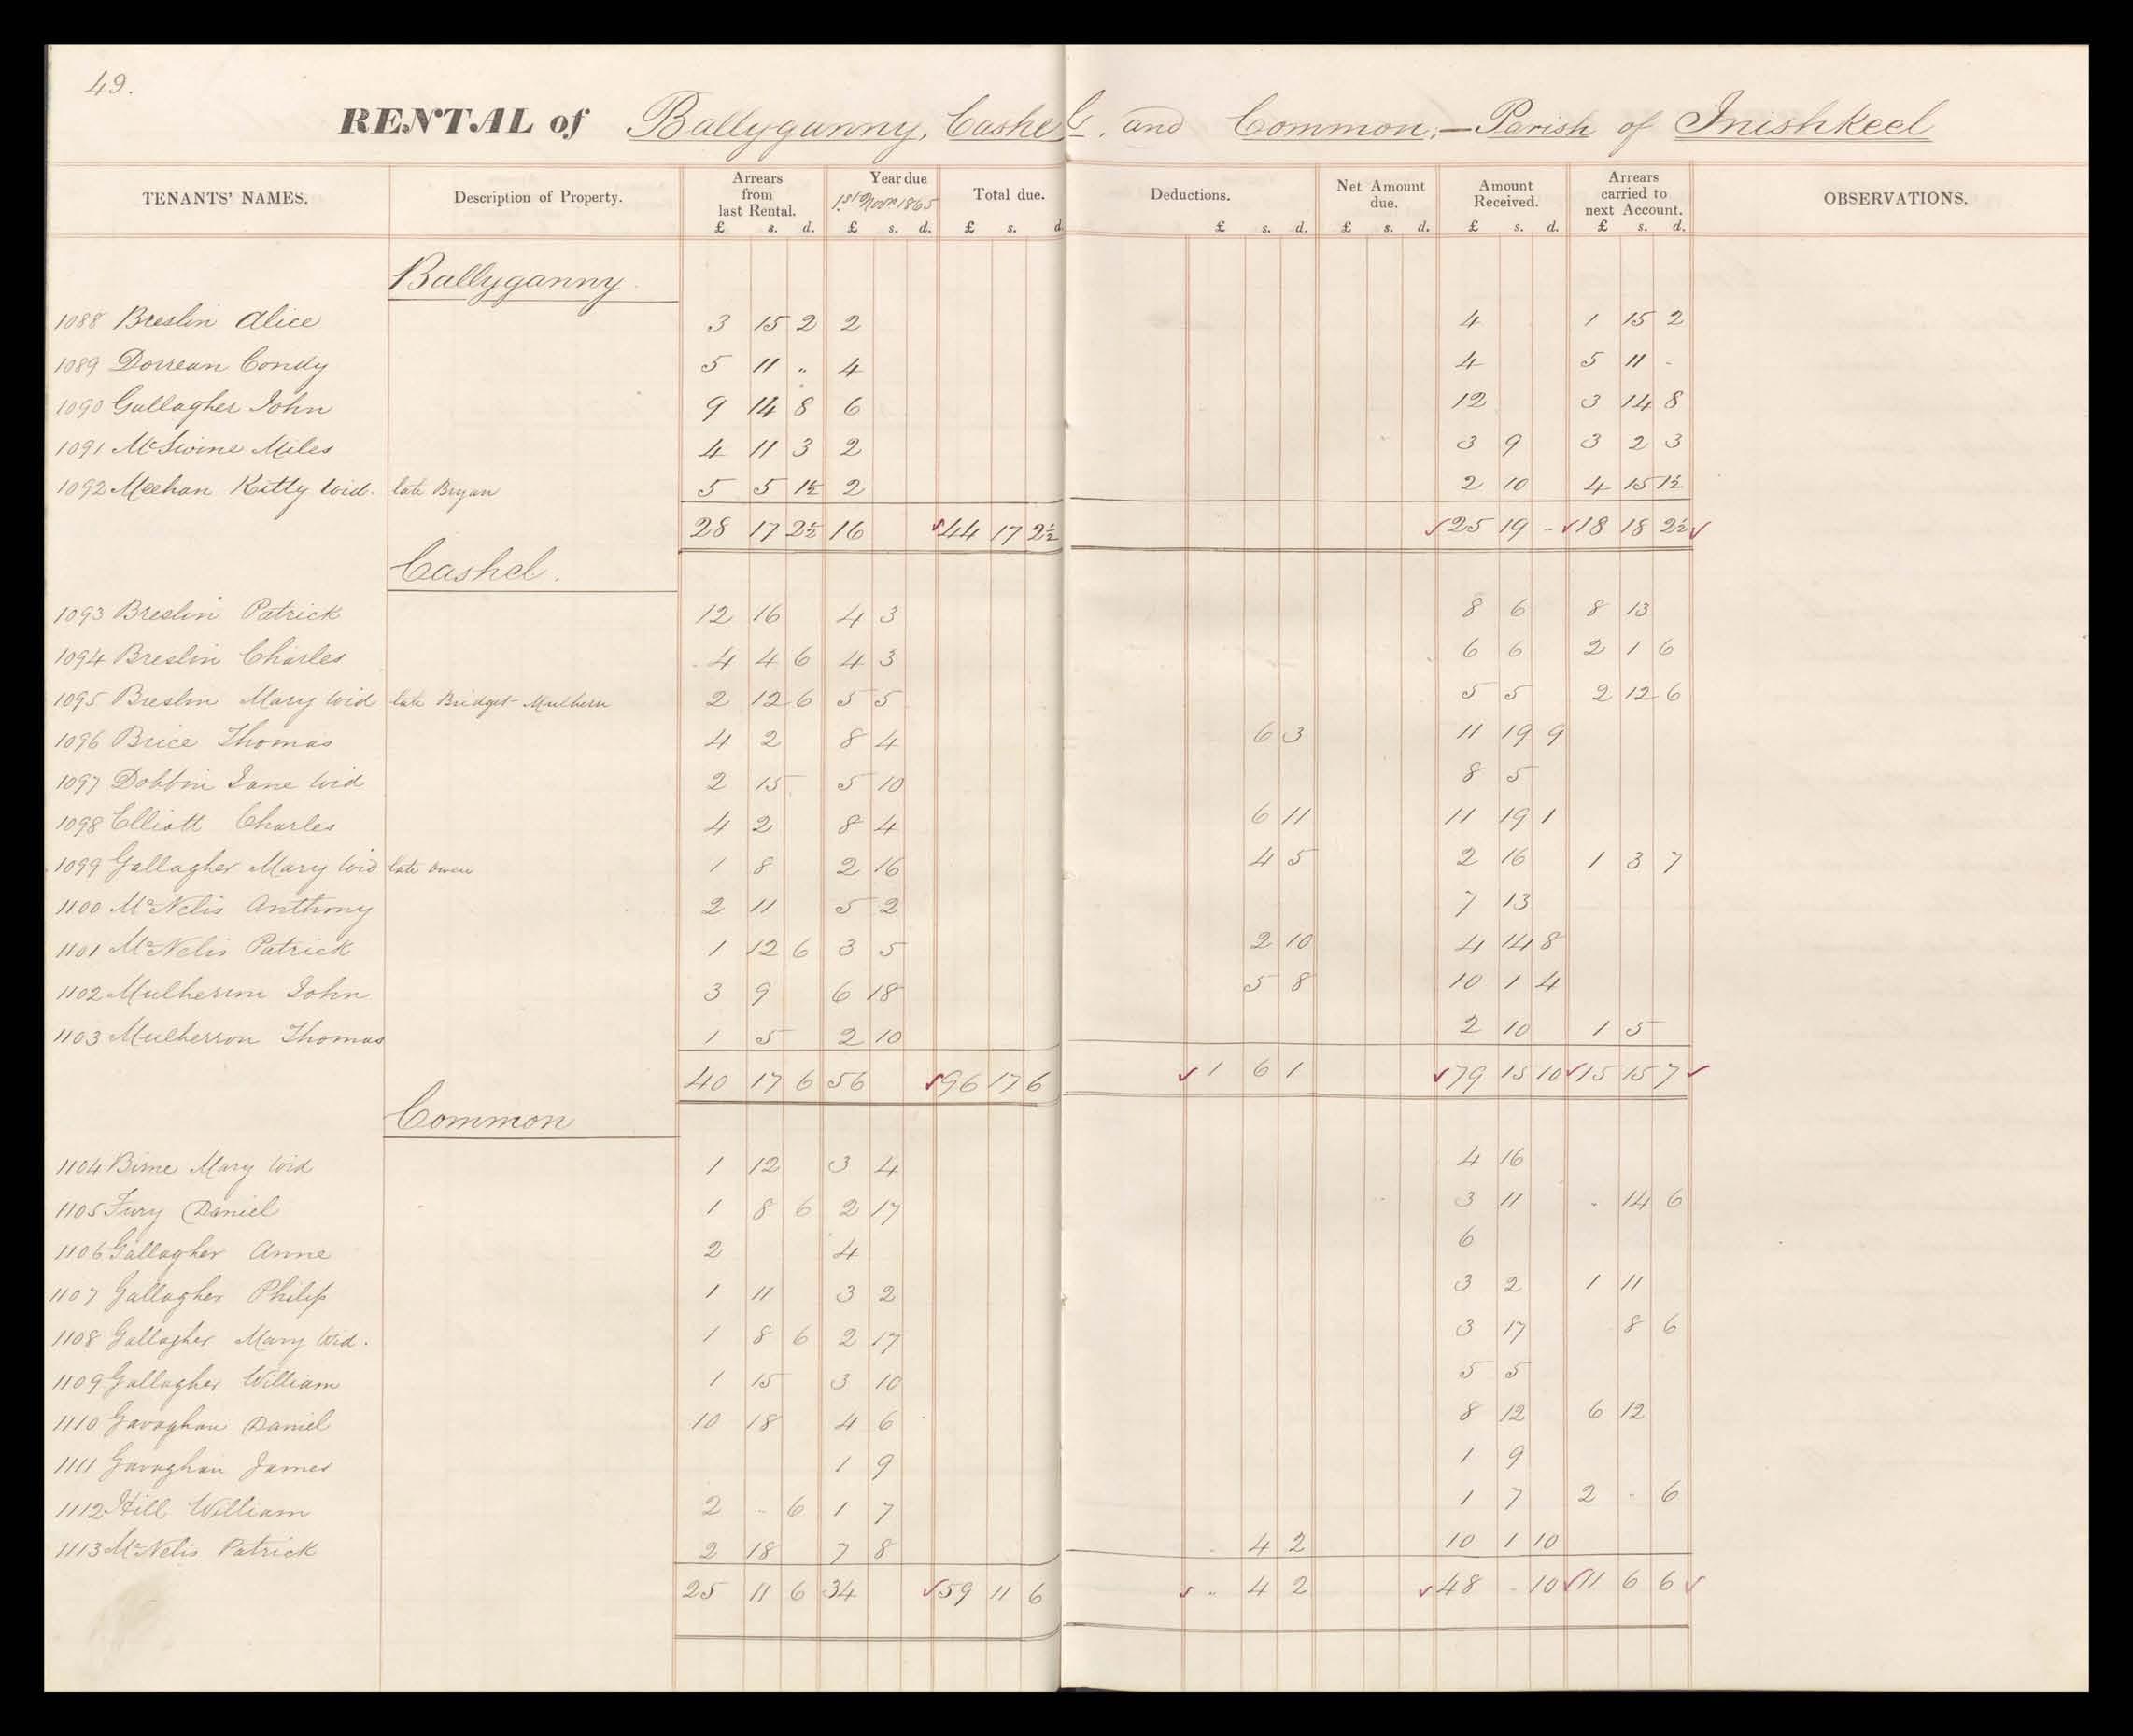 49.
RENTAL of Ballyganny, Cashel, and Common,—Parish of Inishkeel
TENANTS' NAMES. Description of Property. Arrears from last Rental. Year due 1st Novr 1865 Total due. Deductions. Net Amount due. Amount Received. Arrears carried to next Account. OBSERVATIONS.
£ s. d. £ s. d. £ s. d. £ s. d. £ s. d. £ s. d. £ s. d.
Ballyganny
1088 Breslin Alice 3 15 2 2 4 1 15 2
1089 Dorrean Condy 5 11 " 4 4 5 11 -
1090 Gallagher John 9 14 8 6 12 3 14 8
1091 McSwine Miles 4 11 3 2 3 9 3 2 3
1092 Meehan Kitty Wid. late Bryan 5 5 1½ 2 2 10 4 15 1½
28 17 2½ 16 ✓44 17 2½ ✓25 19 - ✓18 18 2½ ✓
Cashel.
1093 Breslin Patrick 12 16 4 3 8 6 8 13
1094 Breslin Charles 4 4 6 4 3 6 6 2 1 6
1095 Breslin Mary Wid late Bridget Mulhern 2 12 6 5 5 5 5 2 12 6
1096 Brice Thomas 4 2 8 4 6 3 11 19 9
1097 Dobbin Jane Wid 2 15 5 10 8 5
1098 Elliott Charles 4 2 8 4 6 11 11 19 1
1099 Gallagher Mary Wid late Owen 1 8 2 16 4 5 2 16 1 3 7
1100 McNelis Anthony 2 11 5 2 7 13
1101 McNelis Patrick 1 12 6 3 5 2 10 4 14 8
1102 Mulherrin John 3 9 6 18 5 8 10 1 4
1103 Mulherron Thomas 1 5 2 10 2 10 1 5
40 17 6 56 ✓96 17 6 ✓1 6 1 ✓79 15 10 ✓15 15 7 ✓
Common
1104 Birne Mary Wid 1 12 3 4 4 16
1105 Fury Daniel 1 8 6 2 17 3 11 - 14 6
1106 Gallagher Anne 2 4 6
1107 Gallagher Philip 1 11 3 2 3 2 1 11
1108 Gallagher Mary Wid. 1 8 6 2 17 3 17 8 6
1109 Gallagher William 1 15 3 10 5 5
1110 Gavaghan Daniel 10 18 4 6 8 12 6 12
1111 Gavaghan James 1 9 1 9
1112 Hill William 2 - 6 1 7 1 7 2 - 6
1113 McNelis Patrick 2 18 7 8 4 2 10 1 10
25 11 6 34 ✓59 11 6 ✓ " 4 2 ✓48 - 10 ✓11 6 6 ✓